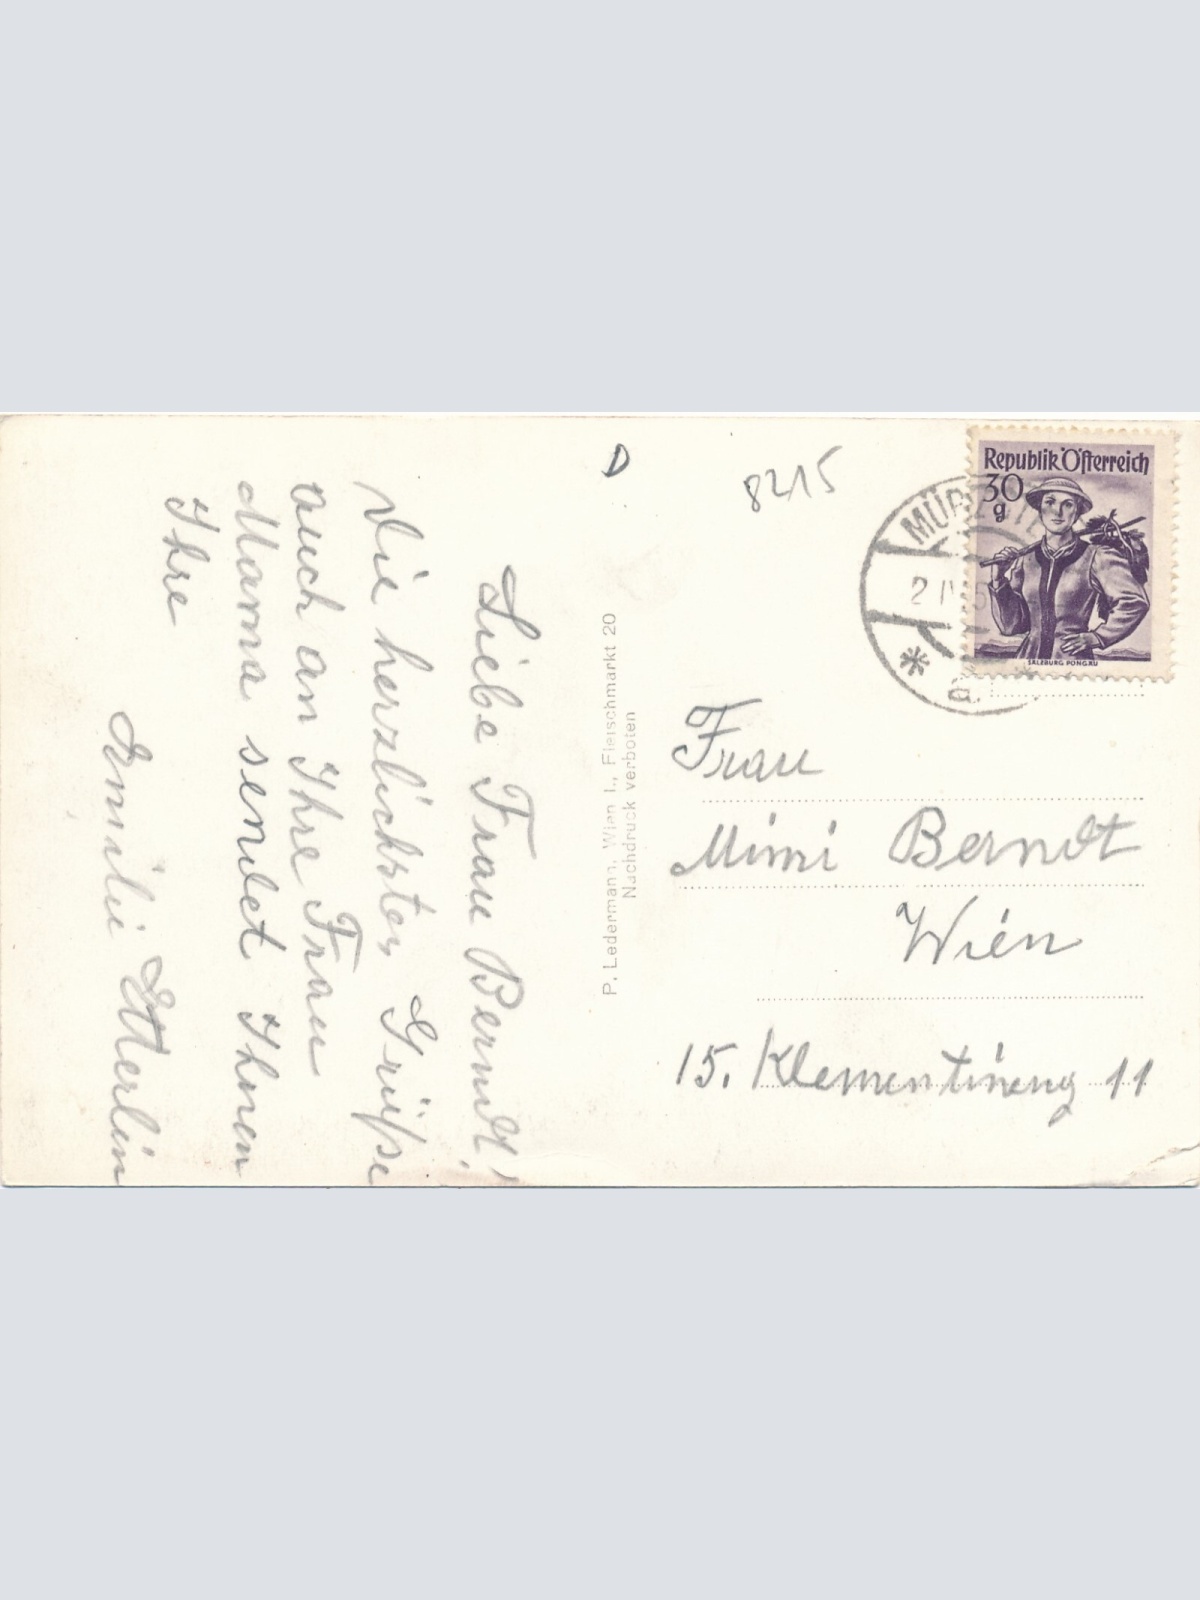 D
8215
Liebe Frau Berndt!
Die herzlichsten Grüße
auch an Ihre Frau
Mama sendet Ihnen
Ihre
Emilie Etterlin
P. Ledermann, Wien I., Fleischmarkt 20
Nachdruck verboten
Republik Österreich
30
g
SALZBURG PONGAU
a
Frau
Mimi Berndt
Wien
15. Klementineng 11